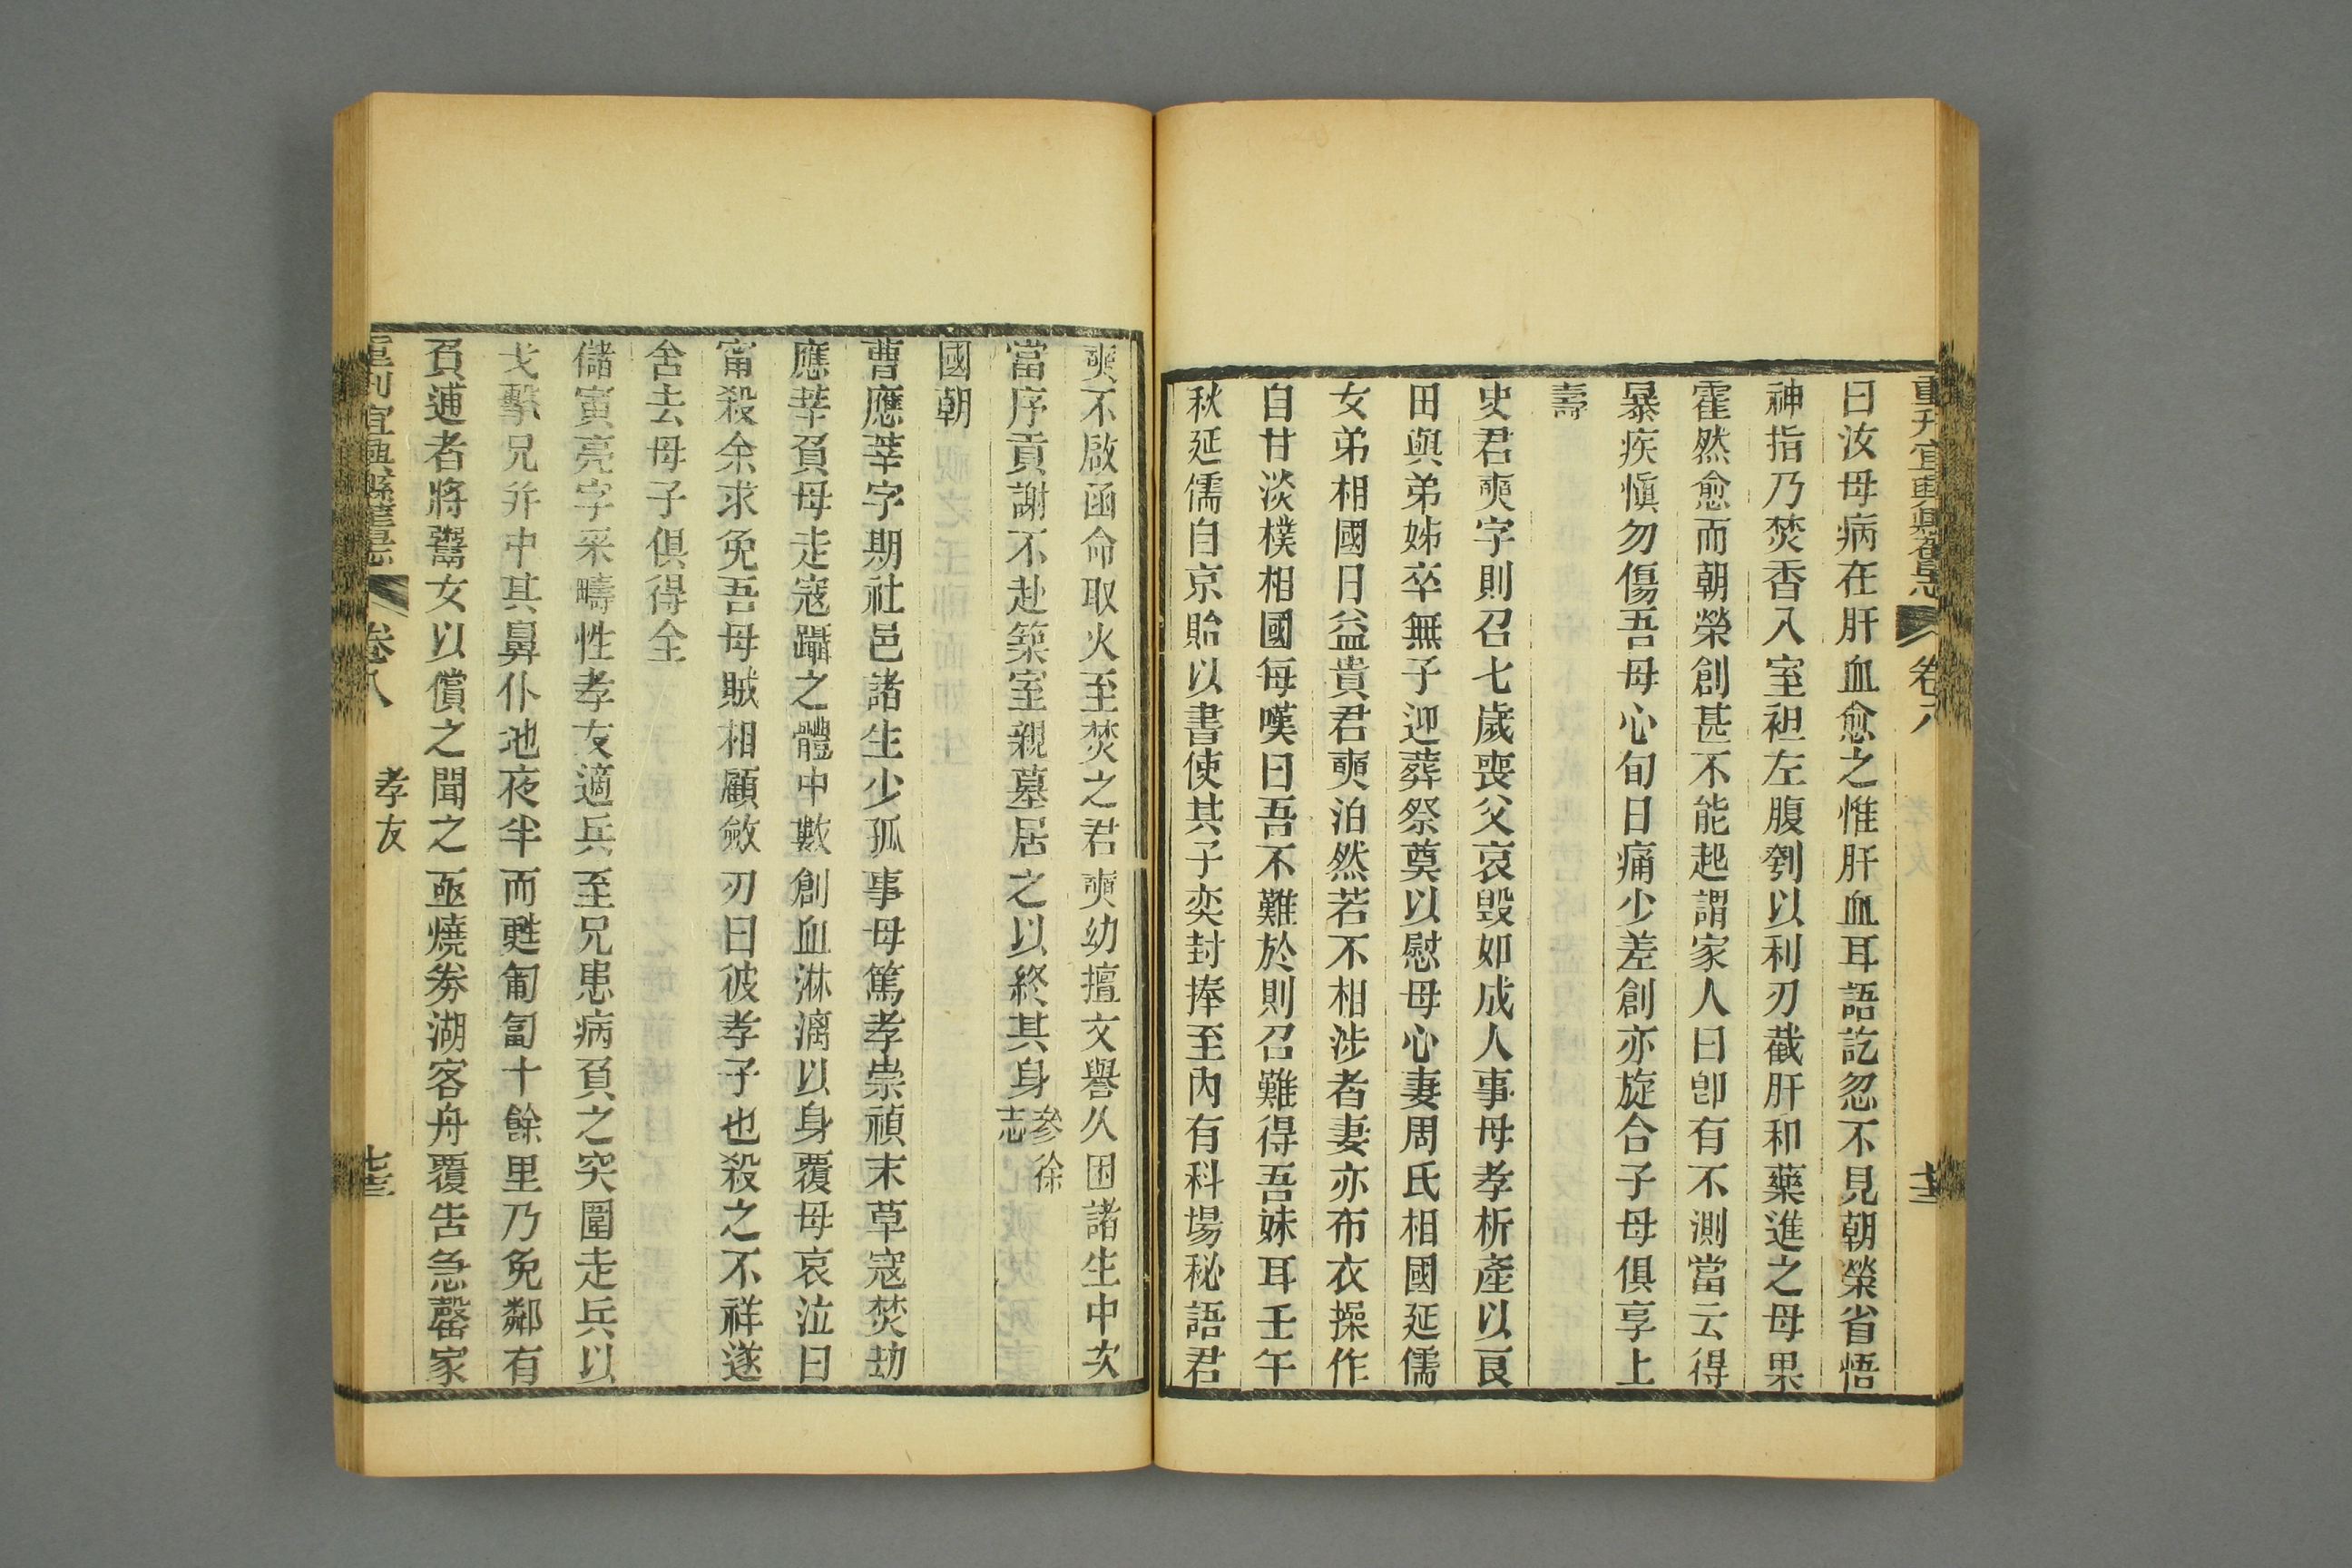 曰汝母病在肝血愈之惟肝血耳語訖忽不見朝榮省悟
神指乃焚香入室袒左腹刳以利刃截肝和藥進之母果
霍然愈而朝榮創甚不能起謂家人曰卽有不測當云得
暴疾愼勿傷吾母心旬日痛少差創亦旋合子母俱享上
壽
史君奭字則召七歲喪父哀毁如成人事母孝析產以良
田與弟姊卒無子迎葬祭奠以慰母心妻周氏相國延儒
女弟相國日益貴君奭泊然若不相涉者妻亦布衣操作
自甘淡樸相國每嘆曰吾不難於則召難得吾妹耳壬午
秋延儒自京貽以書使其子奕封捧至內有科場秘語君
奭不啟函命取火至焚之君奭幼擅文譽久困諸生中次
當序貢謝不赴築室親墓居之以終其身參徐志
國朝
曹應莘字期社邑諸生少孤事母篤孝崇禎末草寇焚劫
應莘負母走寇躡之體中數創血淋漓以身覆母哀泣曰
甯殺余求免吾母賊相顧斂刃曰彼孝子也殺之不祥遂
舍去母子俱得全
儲寅亮字采疇性孝友適兵至兄患病負之突圍走兵以
戈擊兄并中其鼻仆地夜半而甦匍匐十餘里乃免鄰有
負逋者將鬻女以償之聞之亟燒劵湖客舟覆告急罄家
重刋宜興縣舊志 卷八 孝友 七十三